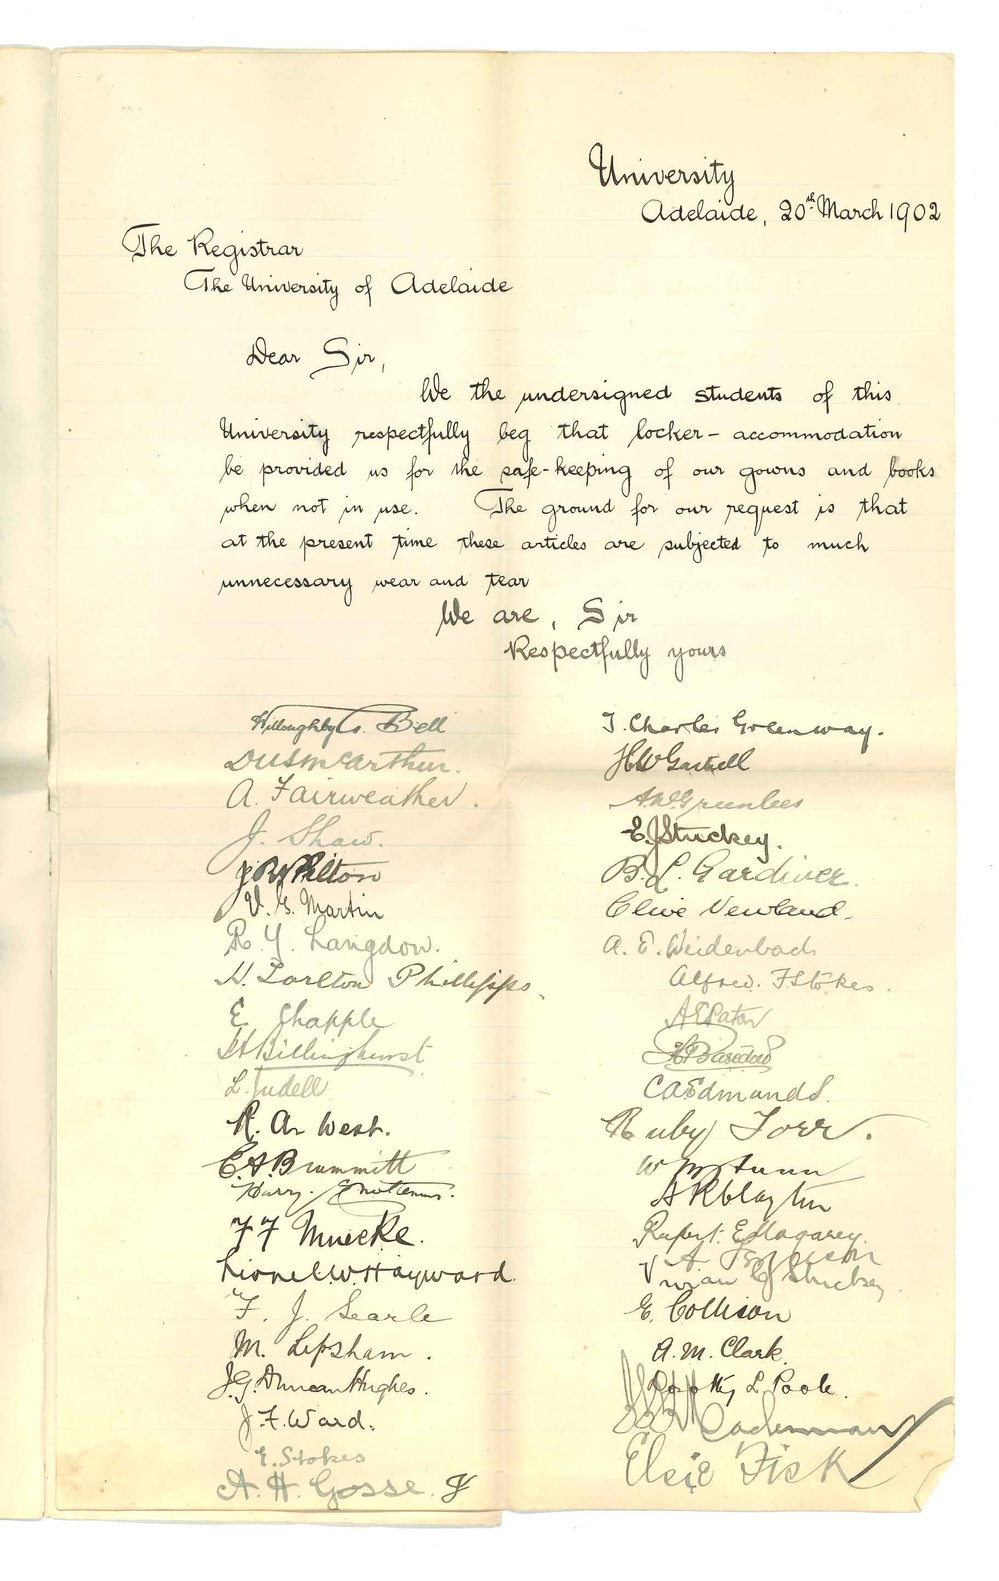 University
Adelaide, 20th March 1902
The Registrar
The University of Adelaide
Dear Sir,
We the undersigned students of this
University respectfully beg that locker-accommodation
be provided us for the safe-keeping of our gowns and books
when not in use. The ground for our request is that
at the present time these articles are subjected to much
unnecessary wear and tear
We are, Sir
Respectfully yours
Willoughby G. Bell
McArthur.
A. Fairweather.
J. Shaw.
V. G. Martin
R. Y. Langdon.
H. Tarlton Phillipps.
E. Chapple
Billinghurst
L. Judell
R. A. West.
E. A. Brummitt
Harry
F F Muecke.
Lionel W. Hayward.
F. J. Searle
M. Lipsham.
J. G. Duncan Hughes.
J. F. Ward.
E. Stokes
A. H. Gosse.
T. Charles Greenway.
H W Gartrell
Greenlees
E. J Stuckey.
B. L. Gardiner.
Clive Newland.
A. E. Weidenbach
Alfred. F Stokes.
A E Paton
Basedow
C A Edmunds.
Ruby Torr.
A R Clayton
Rupert. E Magarey.
A. Ferguson
Vivian Stuckey
E. Collison
A. M. Clark.
Dorothy L Poole.
Caderman
Elsie Fisk